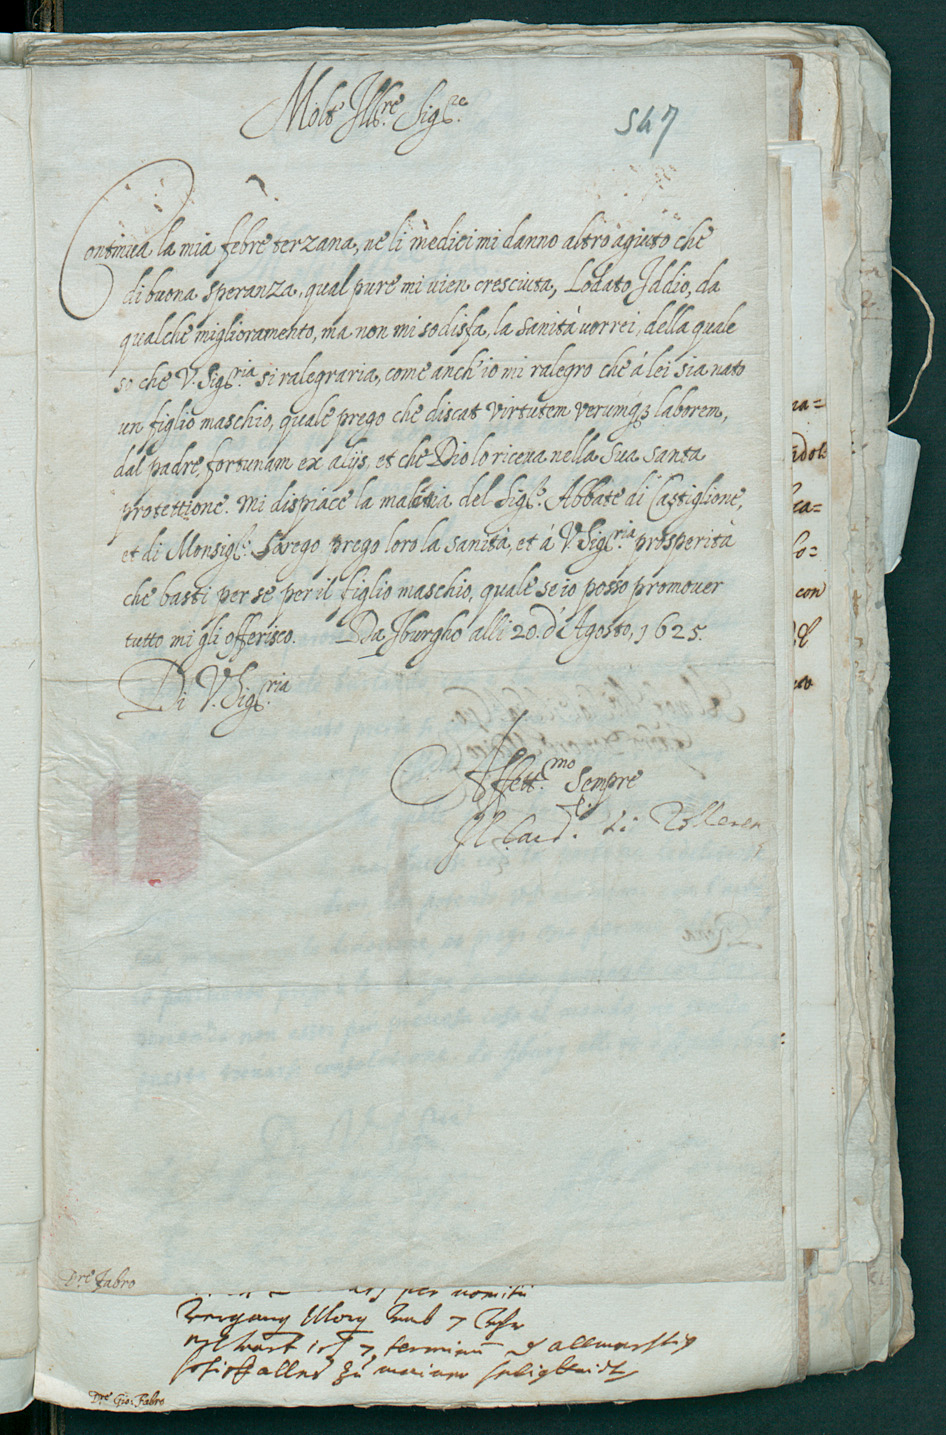 Molt' Ill.re Sig.re
547
Continua la mia febre terzana, ne li medici mi danno altro agiuto che
di buona speranza, qual pure mi uien cresciuta, Lodato Iddio, da
qualche miglioramento, ma non mi sodisfa, la sanità uorrei, della quale
so che V. Sig.ria si ralegraria, come anch'io mi ralegro che á lei sia nato
un figlio maschio, quale prego che discat virtutem verumq; laborem,
dal padre, fortunam ex alijs, et che Dio lo riceua nella sua santa
protettione. Mi dispiace la malatia del Sig.r Abbate di Castiglione,
et di Monsig.r Sarego prego loro la sanità, et á V. Sig.ria prosperità
che basti per se per il figlio maschio, quale se io posso promouer
tutto mi gli offerisco. Da Iburgho alli 20. d'Agosto, 1625.
Di V. Sig.ria
Affett.mo sempre
Il Card. di Zolleren
Roma
D.re Fabro
per
7
7 terminū
alles zu meiner seligkeidt
D.re Gio: Fabro
con